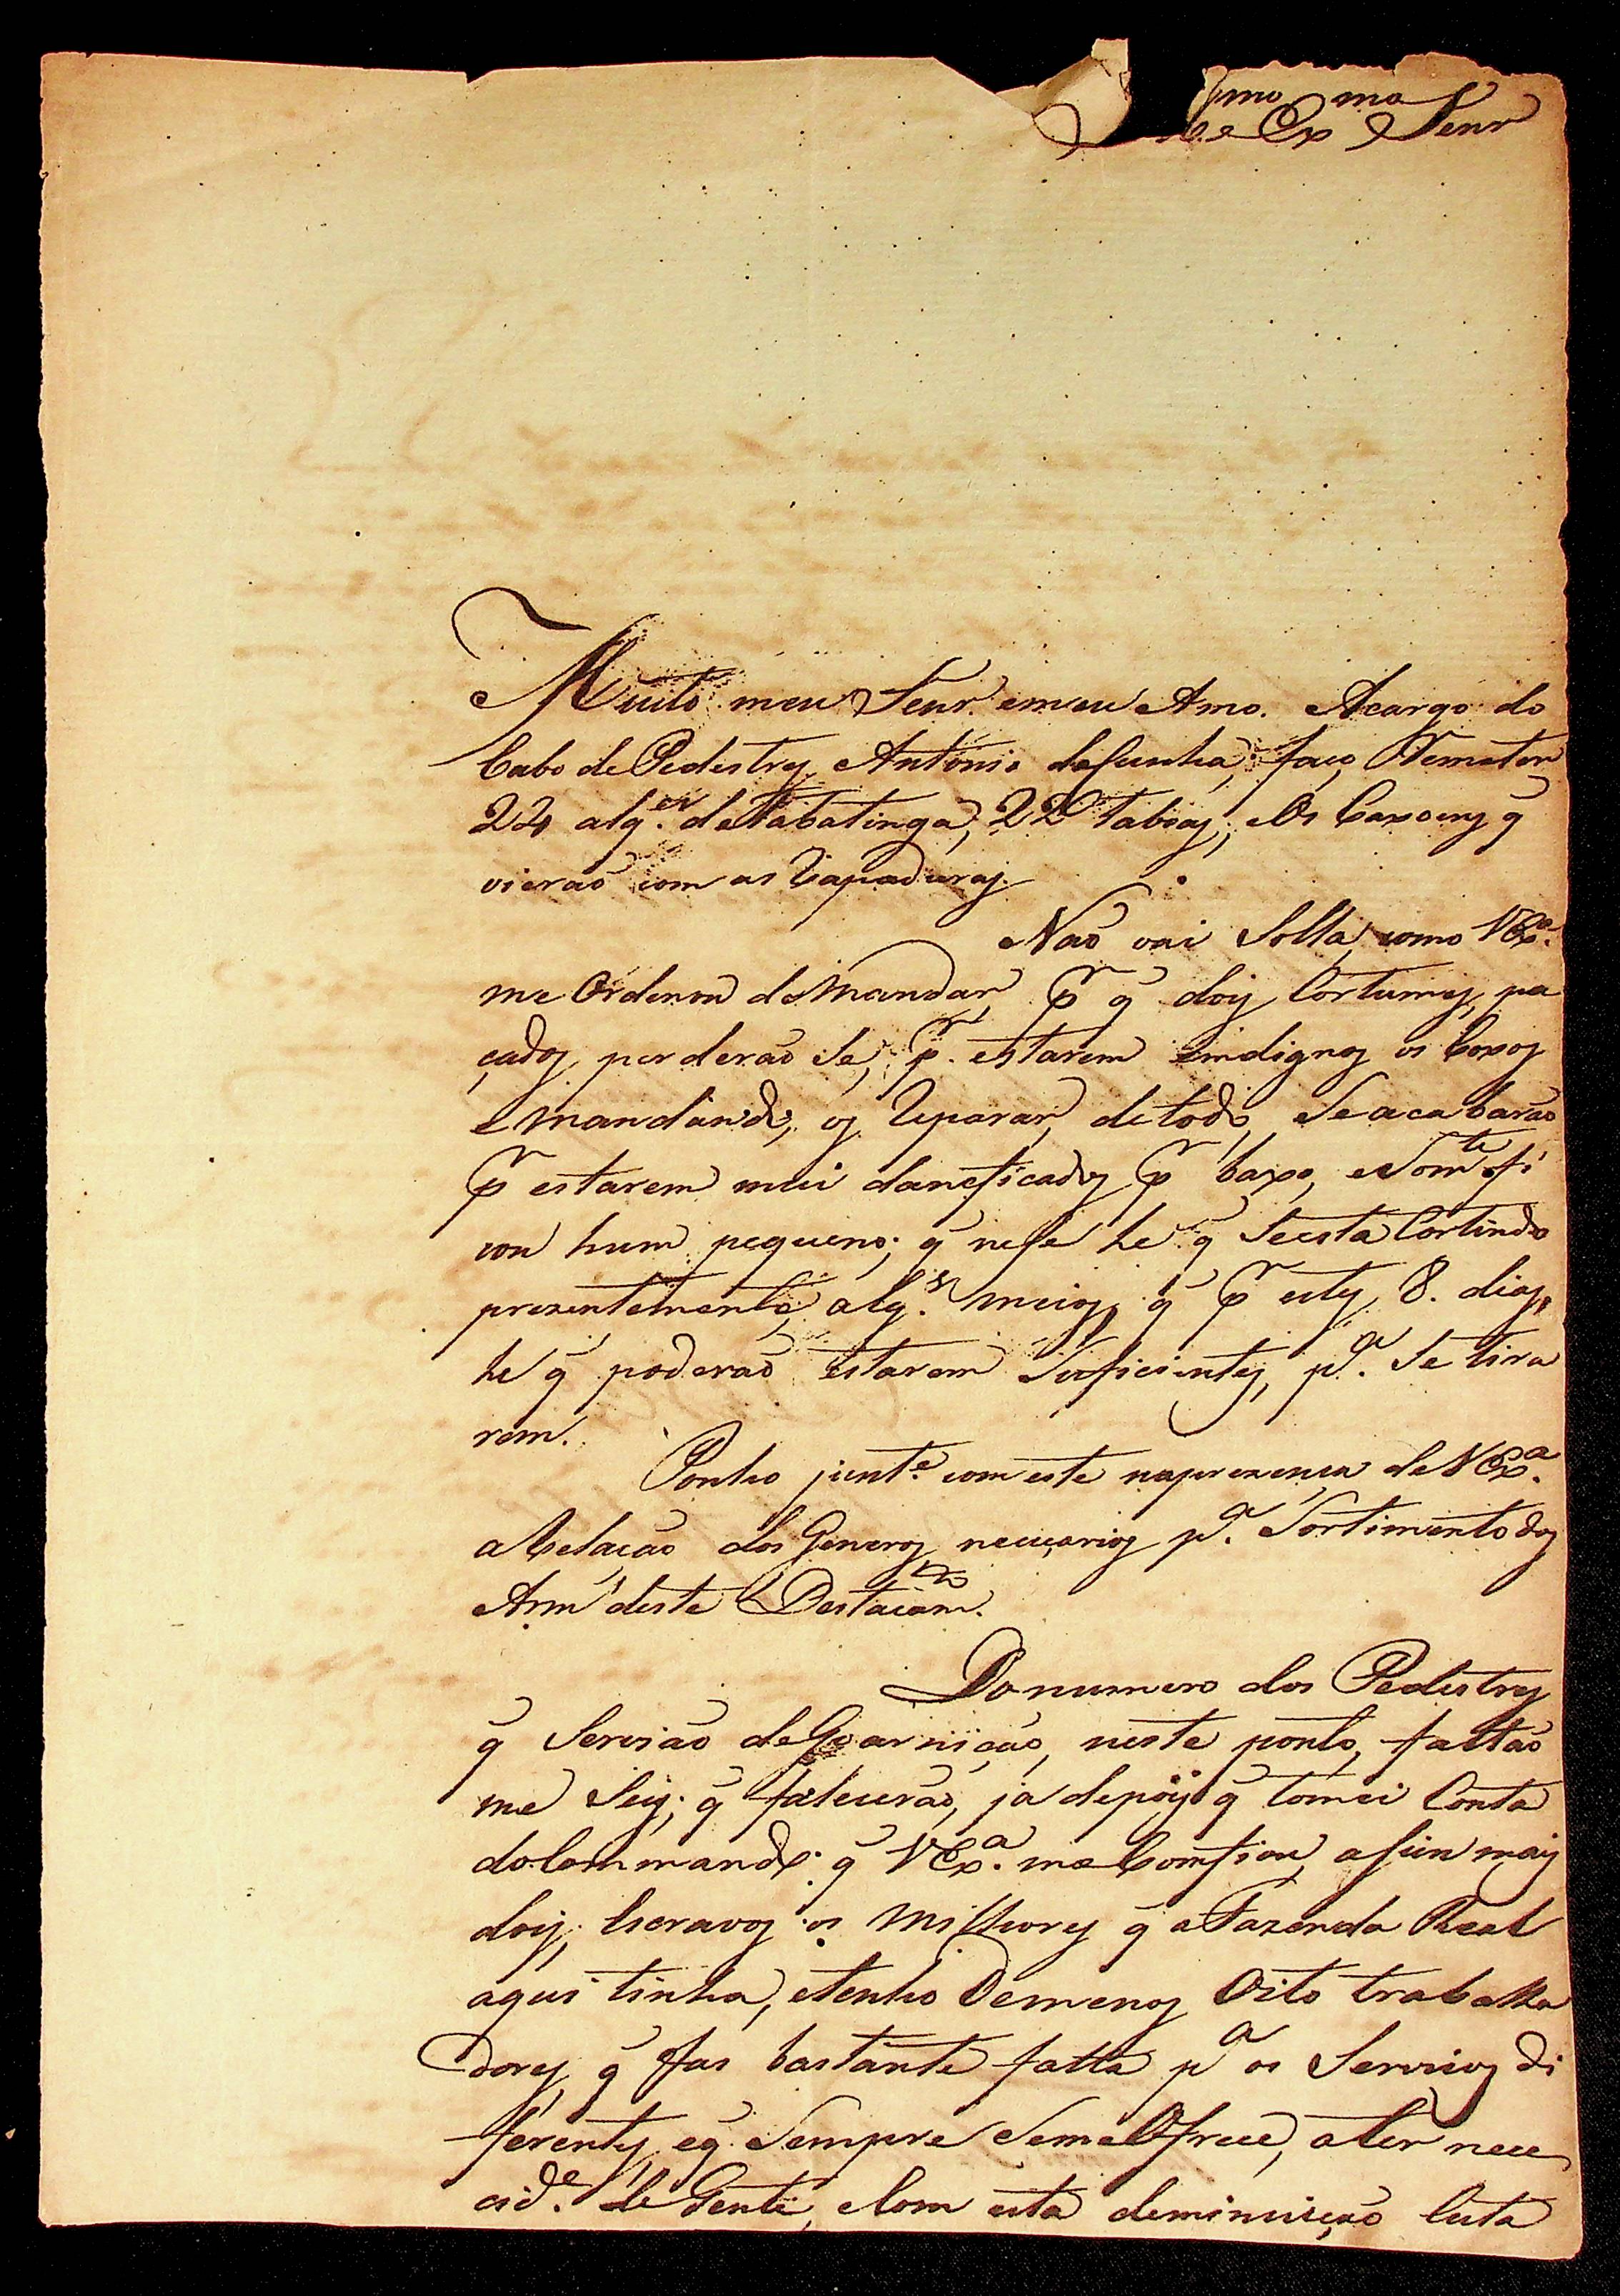 mo mo
e Ex Senr
Muito meu Senr. emeu Amo. Acargo do
Cabo de Pedestres Antonio daCunha, faço Remeter
24 alqr.es deTabatinga, 22 Taboas, eOs Caxoens q̃
vierão com as Tapaduras.
Não vai Solla, como VEx.a
me Ordenou deMandar, pr q̃ dois Cortumes, pa
çados, perderão Se, pr. estarem indignos os Coxos
eMandando, os Reparar, detodo, Seacabarão
pr estarem mui danificados pr baxo, eSomte fi
cou hum pequeno; q̃ nese he q̃ Seesta Cortindo
prezentemente, alg.s meios, q̃ pr estes 8. dias,
he q̃ poderão estarem Suficientes, pa. Se tira
rem.
Ponho junt.e com este naprezença de VEx.a
aRelação dos Generos neceçarios pa. Sortimento dos
Arm deste Destacam.to
Do numero dos Pedestres
q̃ Servião deGoarnição, neste ponto, faltão
me Seis; q̃ falecerão, ja depois q̃ tomei Conta
doCommando. q̃ VEx.a me Comfiou, asim mais
dois, Escravos os Milhores q̃ aFazenda Real
aqui tinha, eTenho Demenos Oito trabalha
dores, q̃ Fas bastante falta pa os Serviços di
ferentes, eq̃ Sempre SemeOfrece, ater nece
cid.e de Gente, eCom esta deminuição Custa